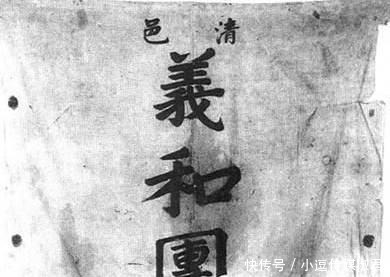 清邑
義和團
快传号／小逗